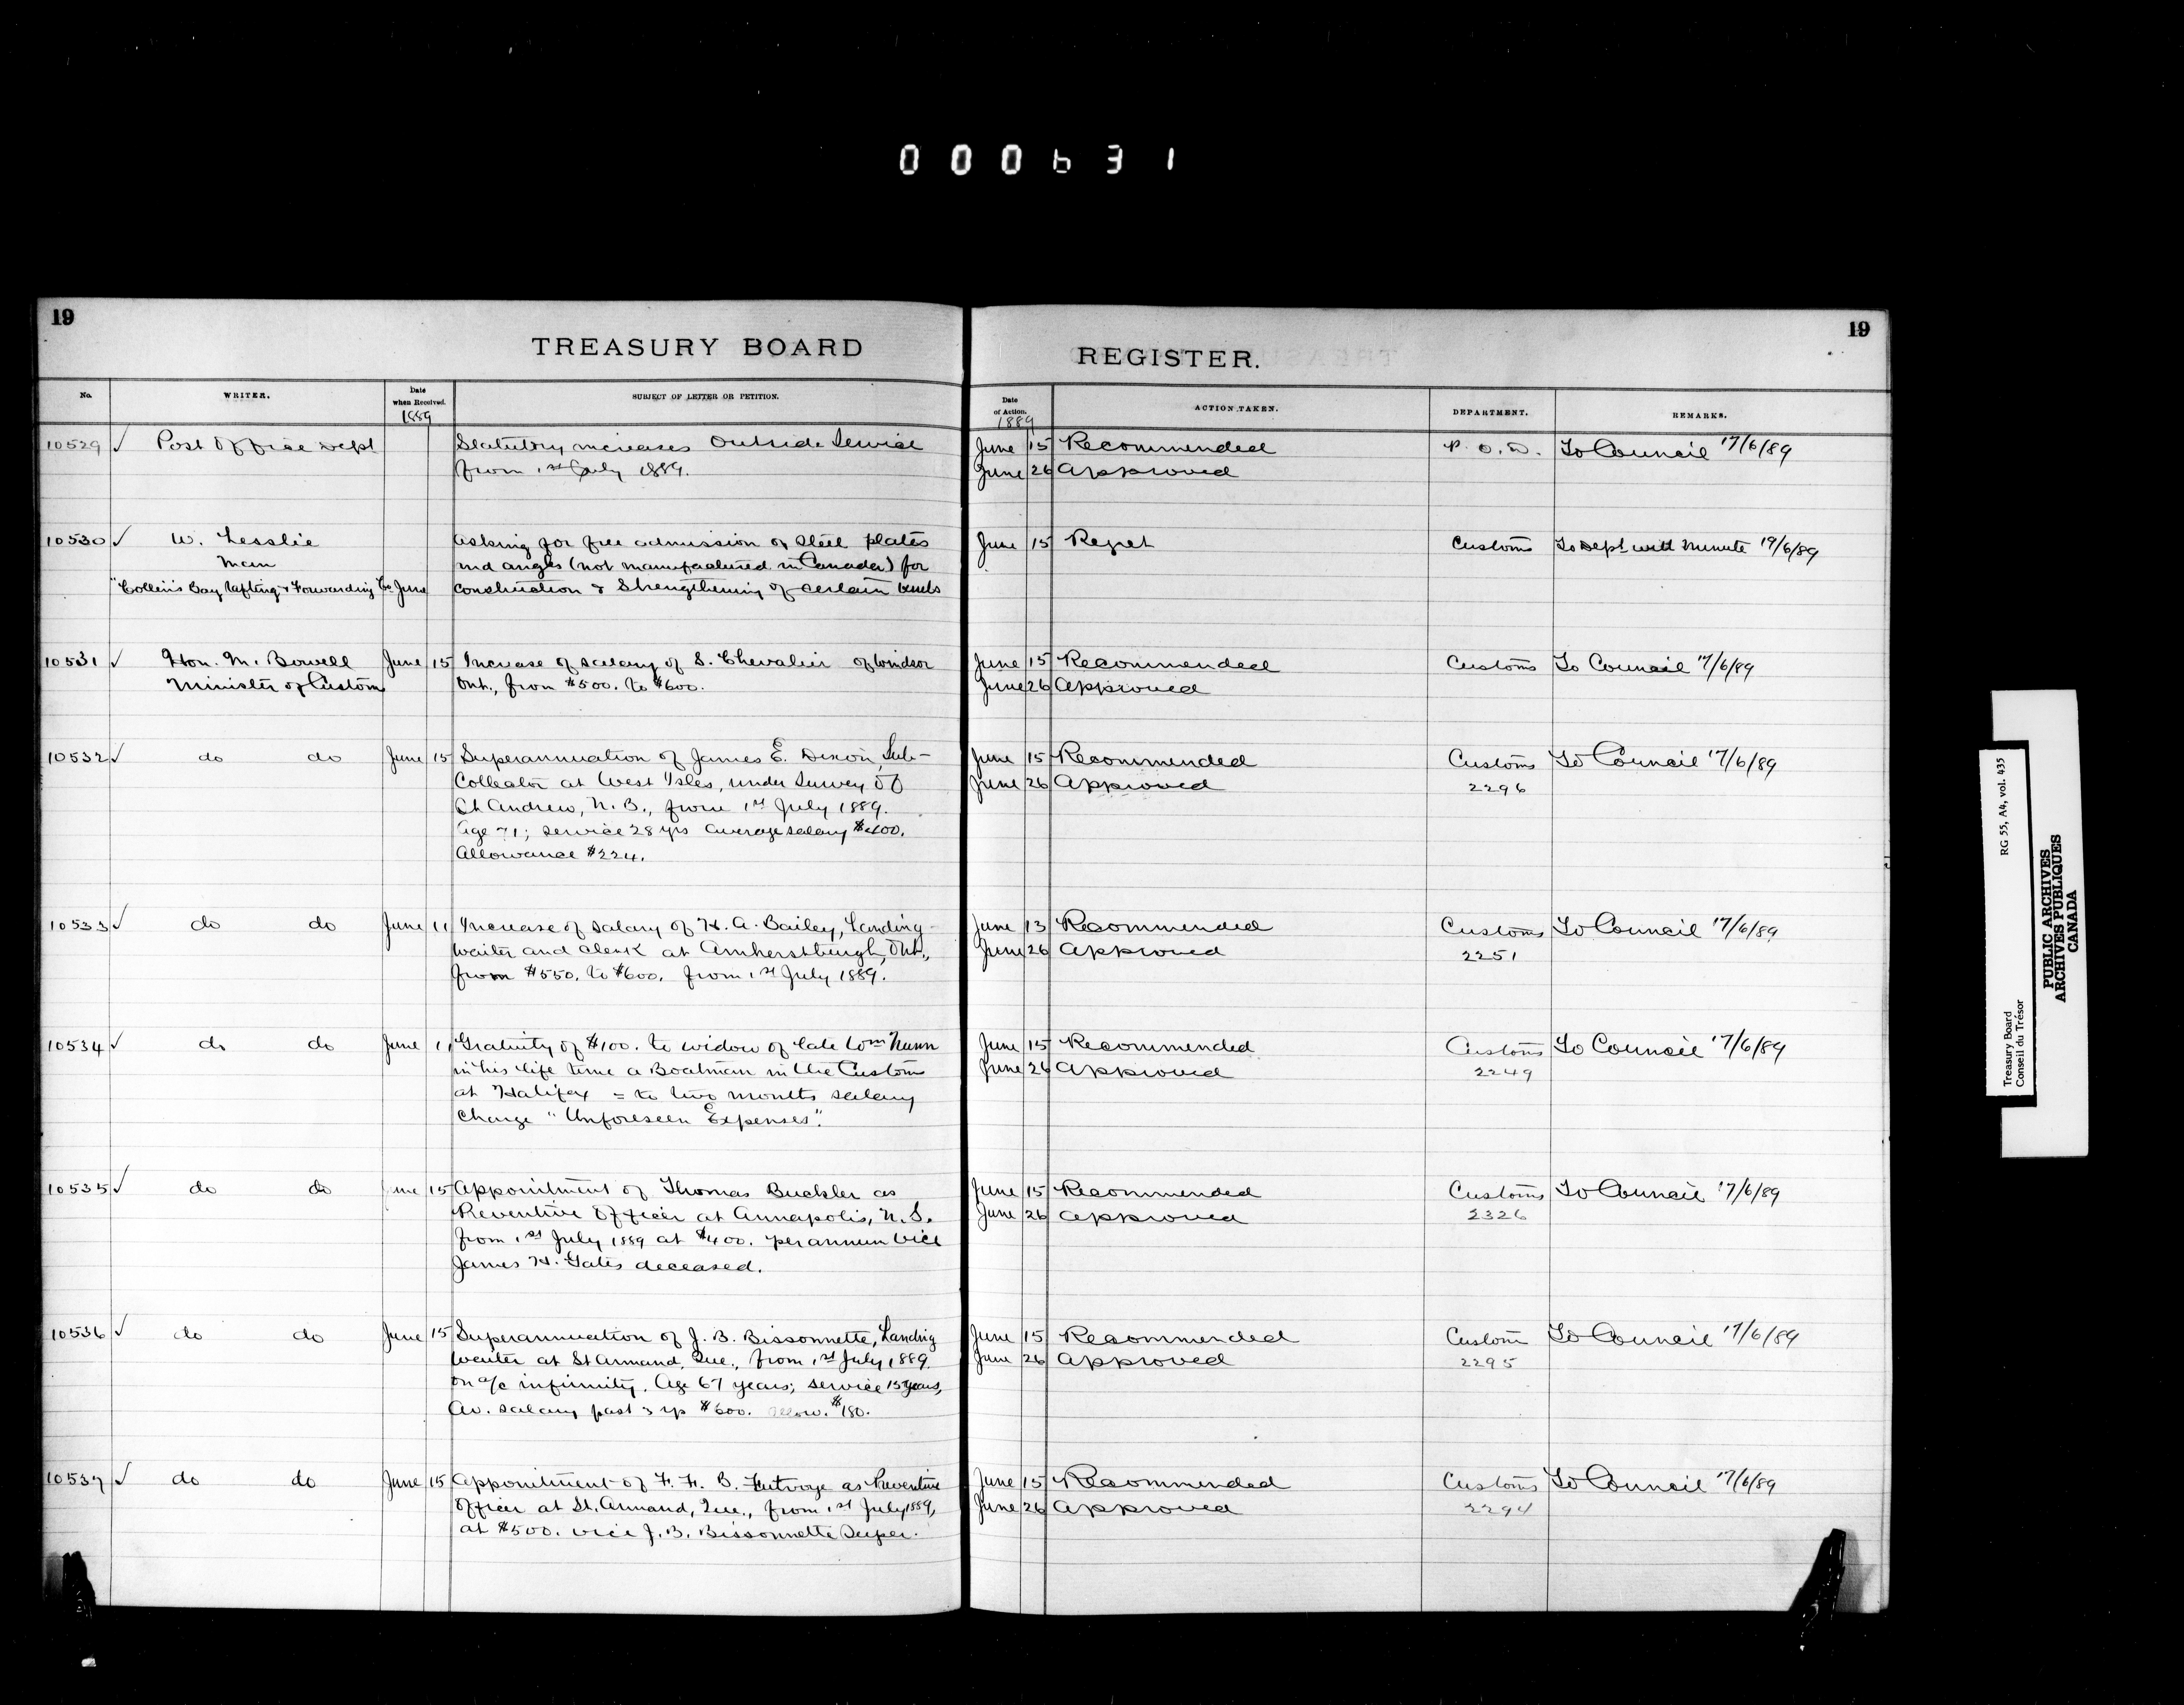 000631
19
19
TREASURY BOARD
REGISTER.
No.
WRITER.
Date when Received.
1889
SUBJECT OF LETTER OR PETITION.
Date of Action.
1889
ACTION TAKEN.
DEPARTMENT.
REMARKS.
10529 ✓ Post Office Dept Statutory increases Outside Service June 15 Recommended P. O. D. To Council 17/6/89
from 1st July 1889. June 26 Approved
10530 ✓ W. Lesslie Asking for free admission of Steel plates June 15 Regret Customs To Dept with Minute 19/6/89
Man and angles (not manufactured in Canada) for
"Collin's Bay Rafting & Forwarding Co June construction & Strengthening of certain
10531 ✓ Hon. M. Bowell June 15 Increase of salary of S. Chevalier of Windsor June 15 Recommended Customs To Council 17/6/89
Minister of Customs Ont., from $500. to $600. June 26 Approved
10532 ✓ do do June 15 Superannuation of James E. Dixon, Sub- June 15 Recommended Customs To Council 17/6/89
Collector at West Isles, under Survey of June 26 Approved 2296
St Andrew, N. B., from 1st July 1889.
Age 71; service 28 yrs average salary $400.
Allowance $224.
10533 ✓ do do June 11 Increase of salary of H. A. Bailey, Landing June 13 Recommended Customs To Council 17/6/89
waiter and clerk at Amherstburgh, Ont., June 26 Approved 2251
from $550. to $600. from 1st July 1889.
10534 ✓ do do June 11 Gratuity of $100. to widow of late Wm Nunn June 15 Recommended Customs To Council 17/6/89
in his life time a Boatman in the Customs June 26 Approved 2249
at Halifax = to two months salary
Charge "Unforeseen Expenses".
10535 ✓ do do June 15 Appointment of Thomas Buckler as June 15 Recommended Customs To Council 17/6/89
Preventive Officer at Annapolis, N. S. June 26 Approved 2326
from 1st July 1889 at $400. per annum vice
James H. Gates deceased.
10536 ✓ do do June 15 Superannuation of J. B. Bissonnette, Landing June 15 Recommended Custom To Council 17/6/89
waiter at St Armand, Que., from 1st July 1889. June 26 Approved 2295
on a/c infirmity. Age 67 years; service 15 years,
Av. salary past 3 yrs $600. Allow. $180.
10537 ✓ do do June 15 Appointment of F. F. B. as Preventive June 15 Recommended Customs To Council 17/6/89
Officer at St. Armand, Que., from 1st July 1889, June 26 Approved 2294
at $500. vice J. B. Bissonnette Super.
Treasury Board RG 55, A4, vol. 435
Conseil du Trésor
PUBLIC ARCHIVES
ARCHIVES PUBLIQUES
CANADA